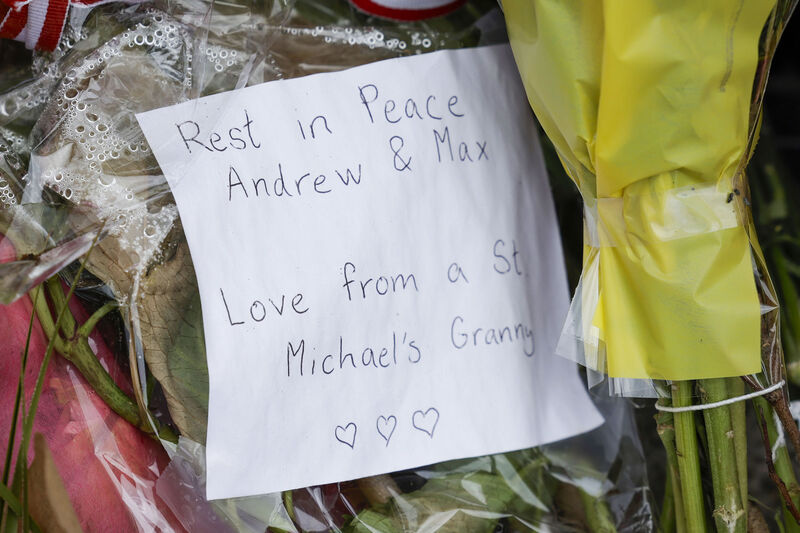 Rest in Peace
Andrew & Max
Love from a St.
Michael's Granny
♡ ♡ ♡